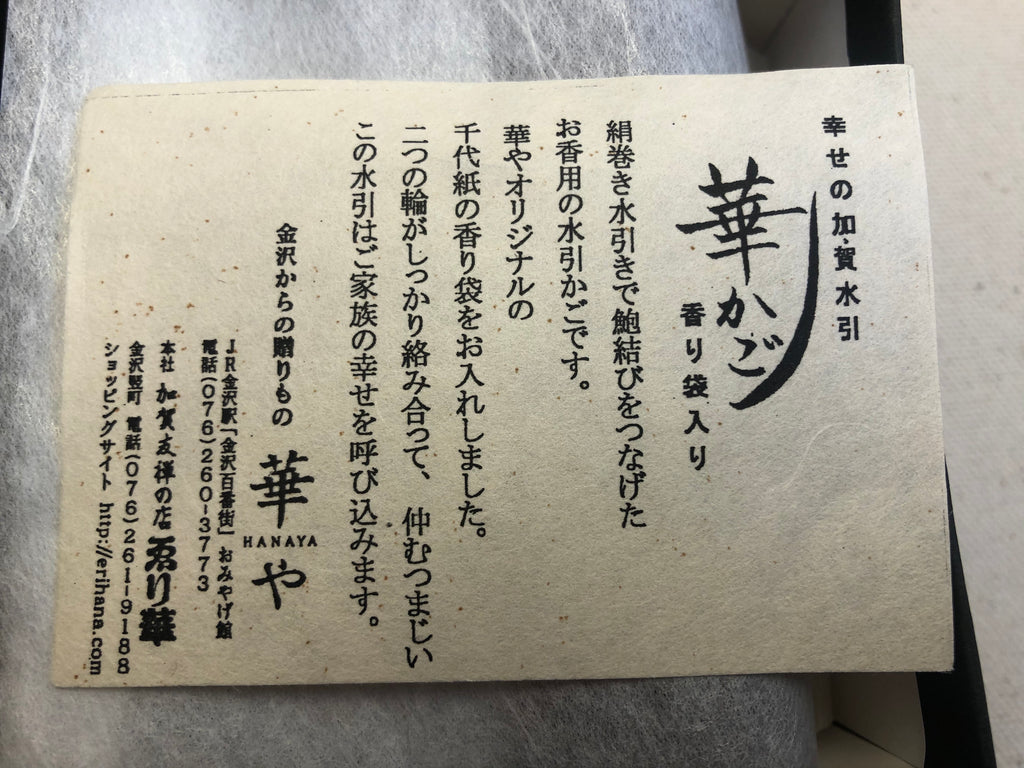 幸せの加賀水引
華かご
香り袋入り
絹巻き水引きで鮑結びをつなげた
お香用の水引かごです。
華やオリジナルの
千代紙の香り袋をお入れしました。
二つの輪がしっかり絡み合って、仲むつまじい
この水引はご家族の幸せを呼び込みます。
金沢からの贈りもの
華や
HANAYA
JR金沢駅「金沢百番街」おみやげ館
電話(076)260-3773
本社 加賀友禅の店 ゑり華
金沢竪町 電話(076)261-9188
ショッピングサイト http://erihana.com